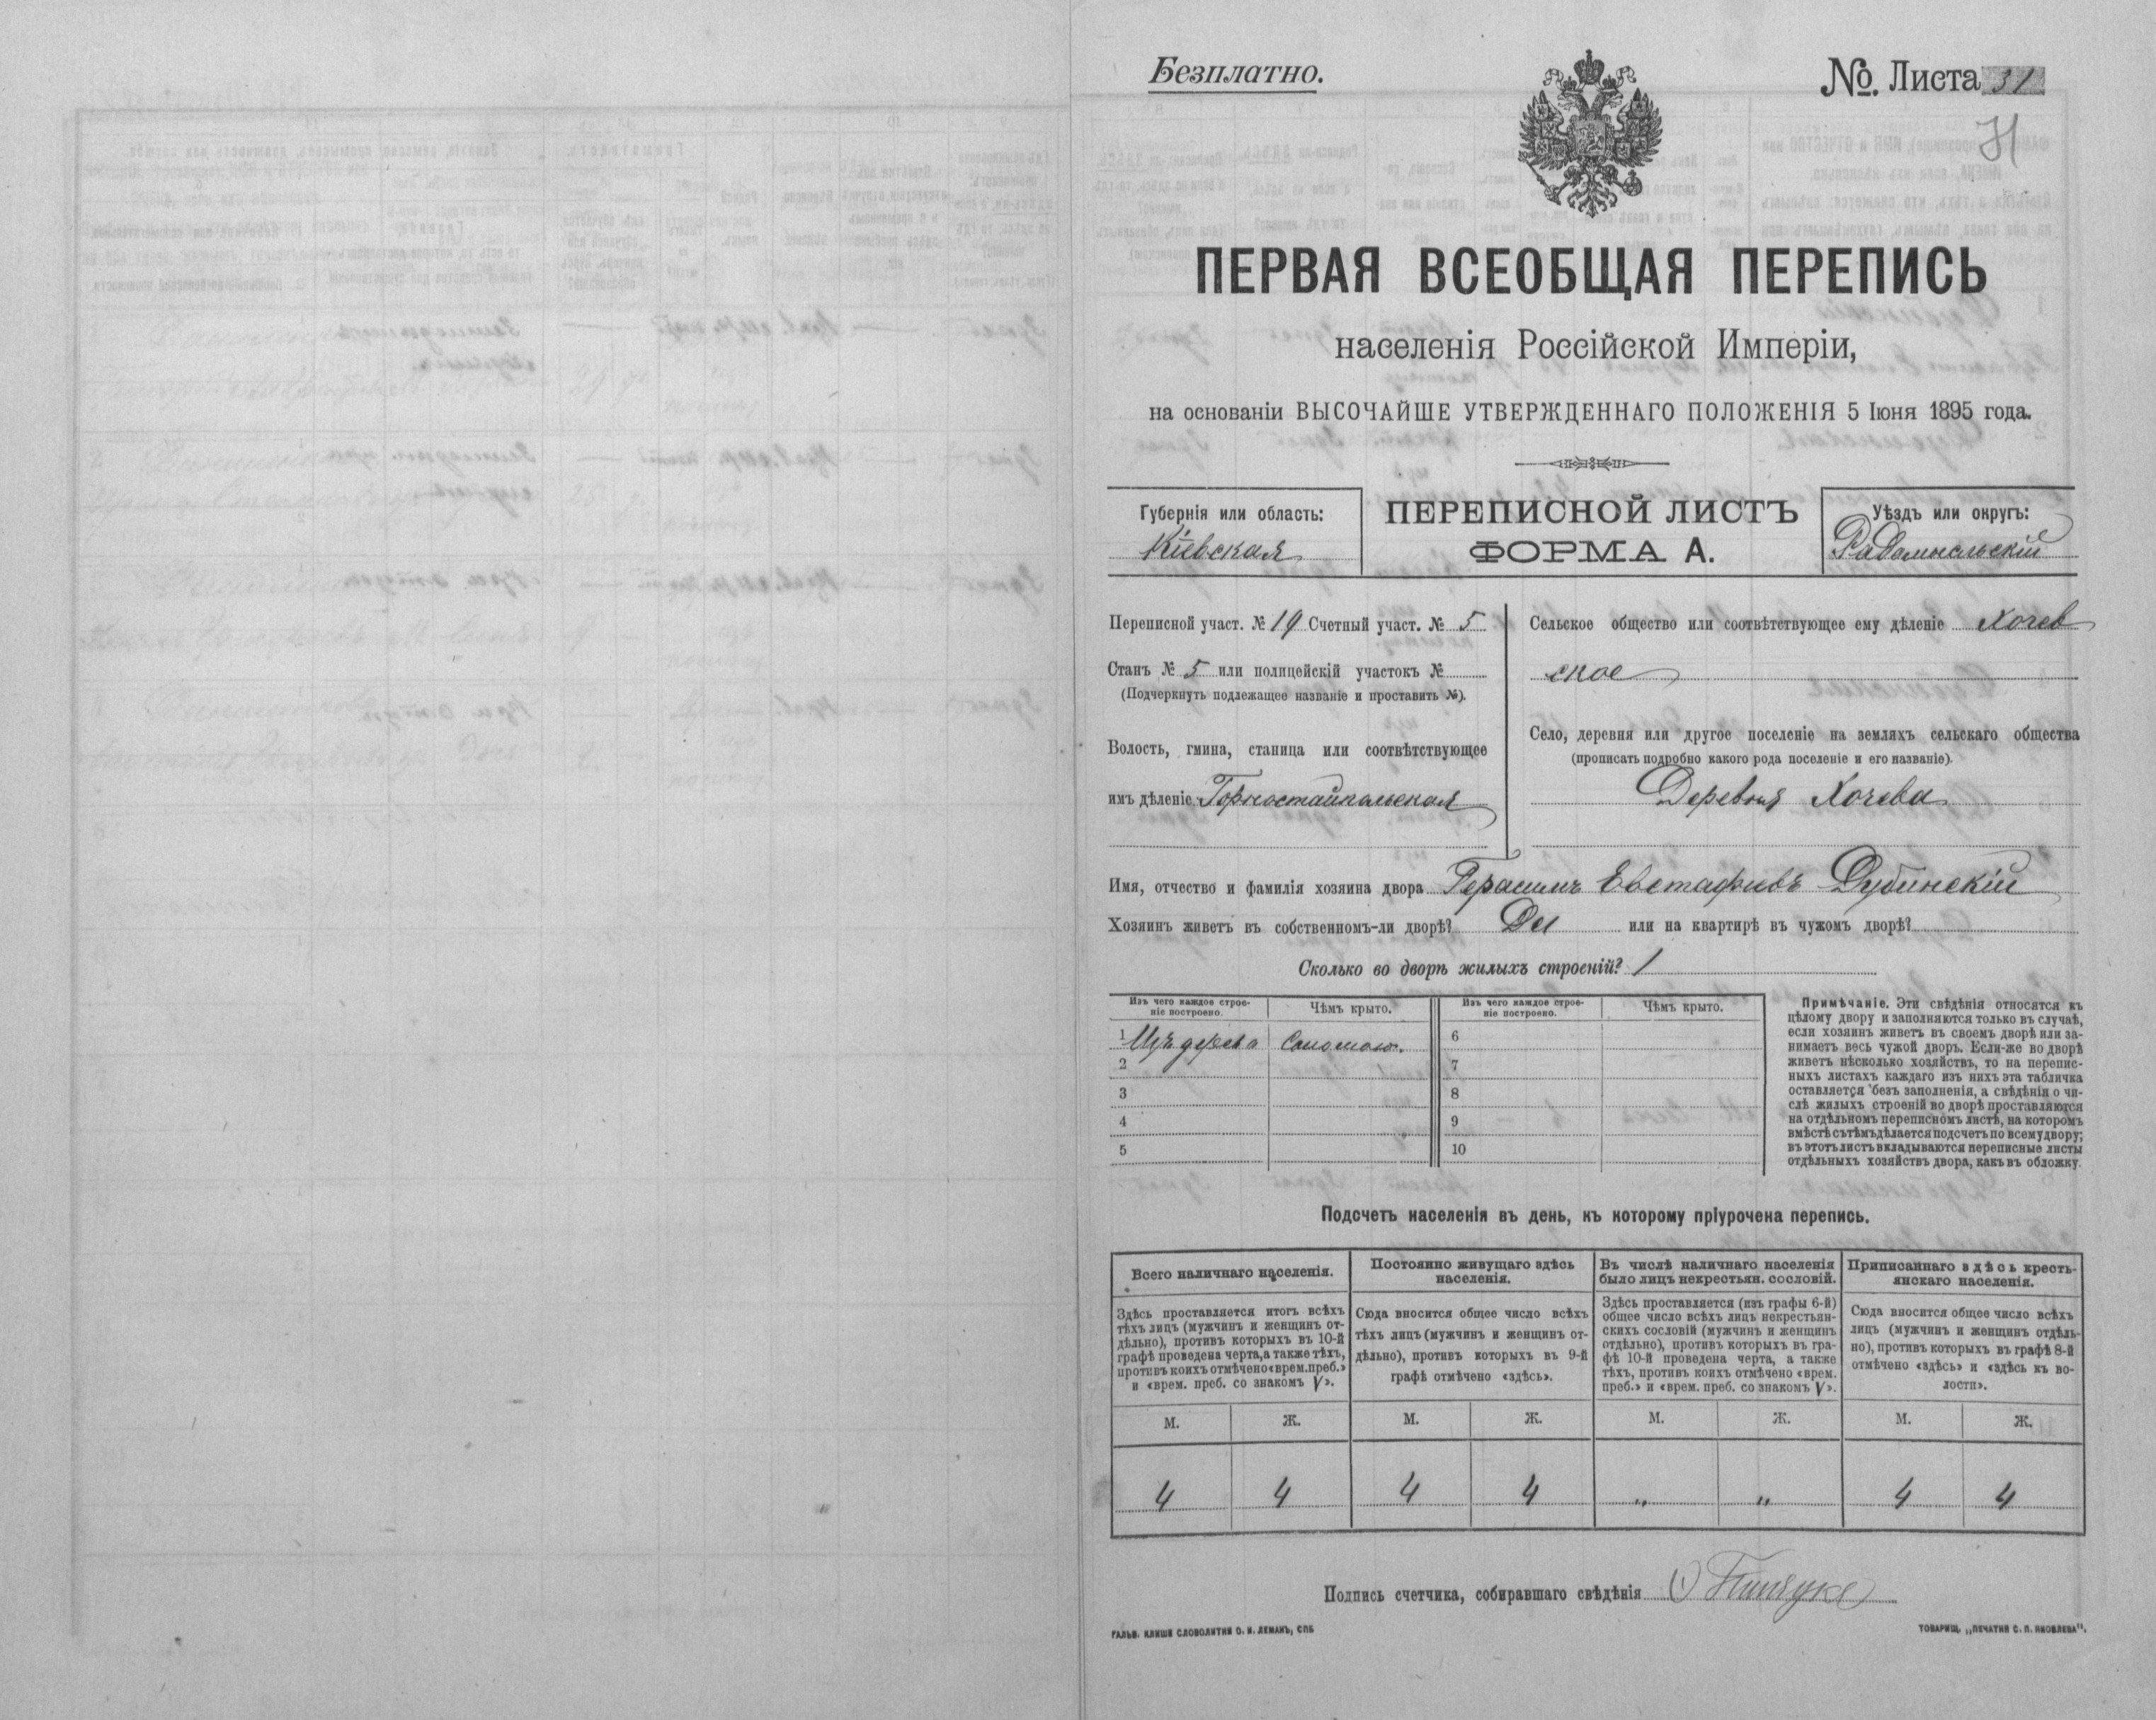 Безплатно.
№ Листа 31
Н
ПЕРВАЯ ВСЕОБЩАЯ ПЕРЕПИСЬ
населенія Россійской Имперіи,
на основаніи ВЫСОЧАЙШЕ УТВЕРЖДЕННАГО ПОЛОЖЕНІЯ 5 Іюня 1895 года.
Губернія или область:
Кіевская
ПЕРЕПИСНОЙ ЛИСТЪ
ФОРМА А.
Уѣздъ или округъ:
Радомысльскій
Переписной участ. № 19 Счетный участ. № 5
Станъ № 5 или полицейскій участокъ №
(Подчеркнуть подлежащее названіе и проставить №).
Волость, гмина, станица или соотвѣтствующее
имъ дѣленіе Горностайпольская
Сельское общество или соотвѣтствующее ему дѣленіе Хочев
ское
Село, деревня или другое поселеніе на земляхъ сельскаго общества
(прописать подробно какого рода поселеніе и его названіе).
Деревня Хочева
Имя, отчество и фамилія хозяина двора Герасимъ Евстафіевъ Дубинскій
Хозяинъ живетъ въ собственномъ-ли дворѣ? Да или на квартирѣ въ чужомъ дворѣ?
Сколько во дворѣ жилыхъ строеній? 1
Изъ чего каждое строе-
ніе построено.
Чѣмъ крыто.
Изъ чего каждое строе-
ніе построено.
Чѣмъ крыто.
1 Изъ дерева Соломою.
2
3
4
5
6
7
8
9
10
Примѣчаніе. Эти свѣдѣнія относятся къ
цѣлому двору и заполняются только въ случаѣ,
если хозяинъ живетъ въ своемъ дворѣ или за-
нимаетъ весь чужой дворъ. Если-же во дворѣ
живетъ нѣсколько хозяйствъ, то на перепис-
ныхъ листахъ каждаго изъ нихъ эта табличка
оставляется безъ заполненія, а свѣдѣнія о чи-
слѣ жилыхъ строеній во дворѣ проставляются
на отдѣльномъ переписномъ листѣ, на которомъ
вмѣстѣ съ тѣмъ дѣлается подсчетъ по всему двору;
въ этотъ листъ вкладываются переписные листы
отдѣльныхъ хозяйствъ двора, какъ въ обложку.
Подсчетъ населенія въ день, къ которому пріурочена перепись.
Всего наличнаго населенія.
Здѣсь проставляется итогъ всѣхъ
тѣхъ лицъ (мужчинъ и женщинъ от-
дѣльно), противъ которыхъ въ 10-й
графѣ проведена черта, а также тѣхъ,
противъ коихъ отмѣчено «врем. преб.»
и «врем. преб. со знакомъ V».
Постоянно живущаго здѣсь
населенія.
Сюда вносится общее число всѣхъ
тѣхъ лицъ (мужчинъ и женщинъ от-
дѣльно), противъ которыхъ въ 9-й
графѣ отмѣчено «здѣсь».
Въ числѣ наличнаго населенія
было лицъ некрестьян. сословій.
Здѣсь проставляется (изъ графы 6-й)
общее число всѣхъ лицъ некрестьян-
скихъ сословій (мужчинъ и женщинъ
отдѣльно), противъ которыхъ въ гра-
фѣ 10-й проведена черта, а также
тѣхъ, противъ коихъ отмѣчено «врем.
преб.» и «врем. преб. со знакомъ V».
Приписаннаго здѣсь кресть-
янскаго населенія.
Сюда вносится общее число всѣхъ
лицъ (мужчинъ и женщинъ отдѣль-
но), противъ которыхъ въ графѣ 8-й
отмѣчено «здѣсь» и «здѣсь къ во-
лости».
М. Ж. М. Ж. М. Ж. М. Ж.
4 4 4 4 „ „ 4 4
Подпись счетчика, собиравшаго свѣдѣнія
ГАЛЬВ. КЛИШЕ СЛОВОЛИТНИ О. И. ЛЕМАНЪ, СПБ
ТОВАРИЩ. „ПЕЧАТНЯ С. П. ЯКОВЛЕВА".